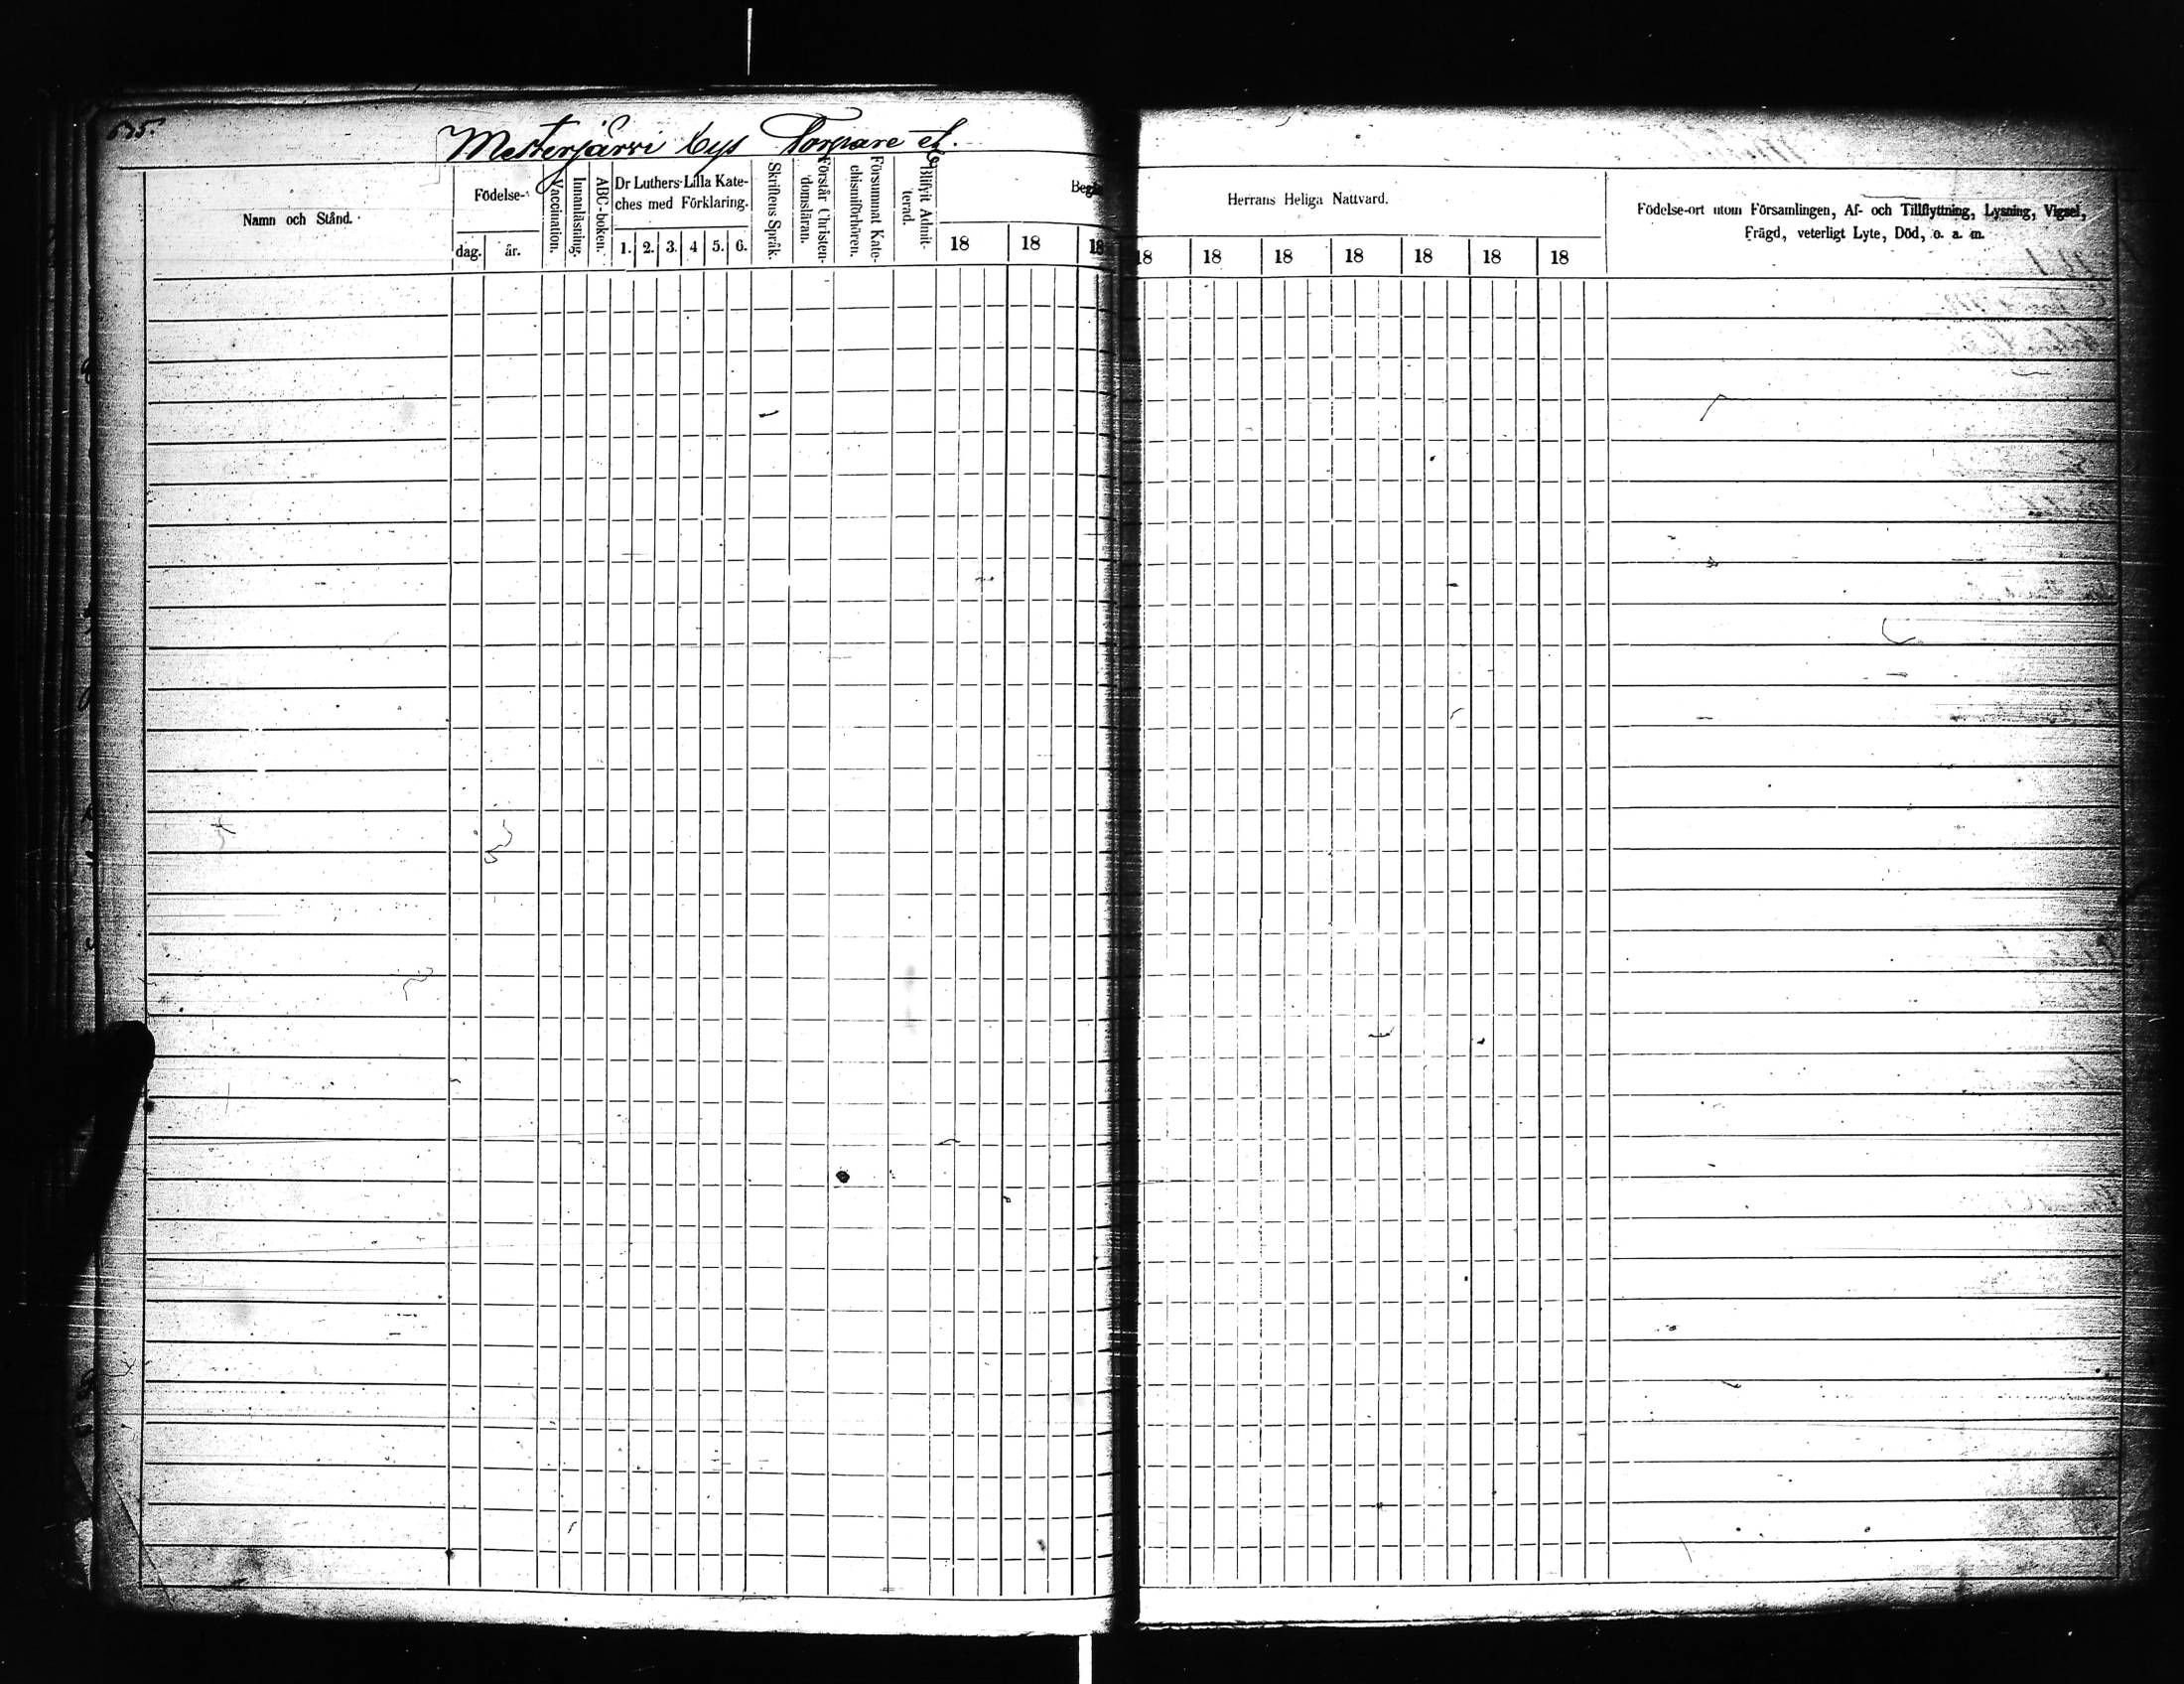 675.
Mesterjärvi bys Torpare et.
Namn och Stånd.
Födelse-
dag. år.
Vaccination.
Innanläsning.
ABC-boken.
Dr Luthers Lilla Kate-
ches med Förklaring.
1. 2. 3. 4 5. 6.
Skriftens Språk.
Förstår Christen-
domsläran.
Försummat Kate-
chismiförhören.
Blifvit Admit-
terad.
Begå
18 18 18
Herrans Heliga Nattvard.
18 18 18 18 18 18 18
Födelse-ort utom Församlingen, Af- och Tillflyttning, Lysning, Vigsel,
Frägd, veterligt Lyte, Död, o. a. m.